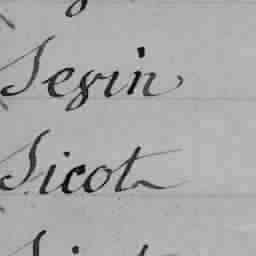 Sevin
Sicot